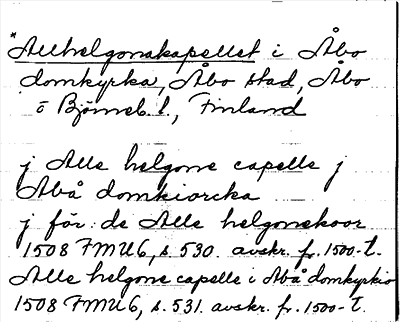 *Allhelgonakapellet i Åbo
domkyrka, Åbo stad, Åbo
o Björneb. l., Finland
j Alle helgone capelle j
Abå domkiorcka
j för: de Alle helgonekoor
1508 FMU6, s. 530. avskr. fr. 1500-t.
Alle helgone capelle i Abå domkyrkio
1508 FMU6, s. 531. avskr. fr. 1500-t.